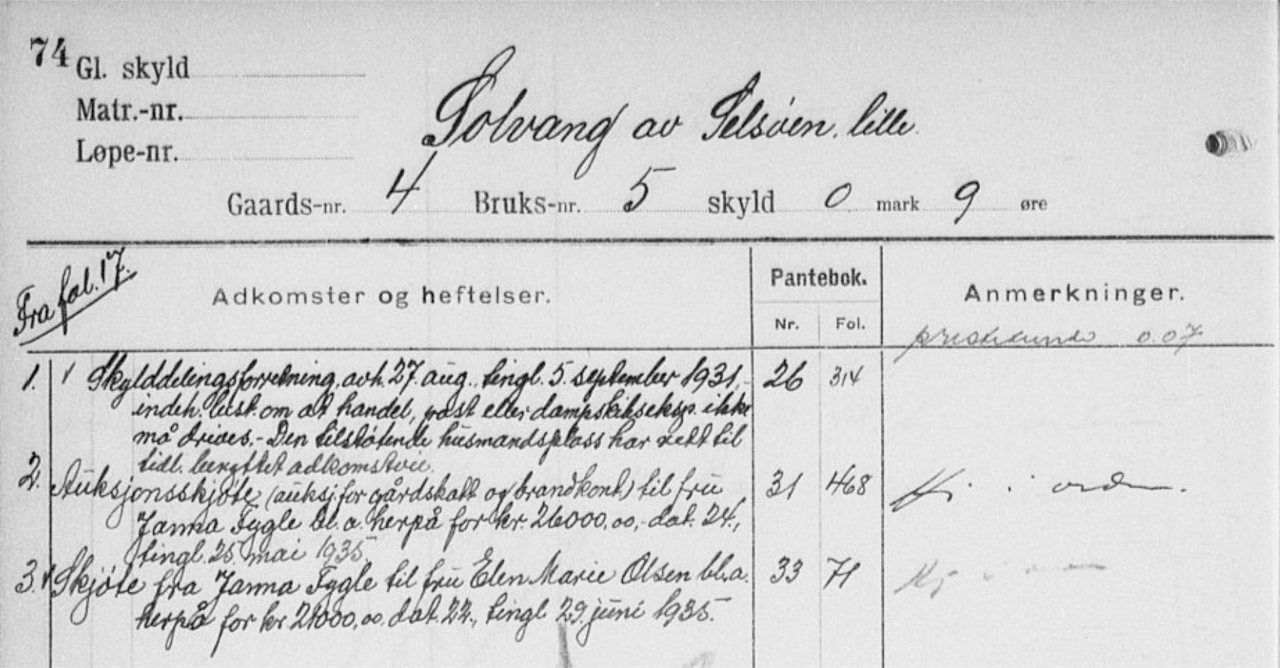 74
Gl. skyld
Matr.-nr.
Løpe-nr.
Solvang av Selsøen, lille.
Gaards-nr. 4 Bruks-nr. 5 skyld 0 mark 9 øre
Fra fol. 17.
Adkomster og heftelser.
Pantebok.
Nr. Fol.
Anmerkninger.
0.07
1. 1 Skylddelingsforretning, avh. 27. aug., tingl. 5. september 1931,- 26 314
indeh. best. om at handel, post eller dampskibseksp. ikke
må drives.- Den tilstøtende husmandsplass har rett til
tidl. benyttet adkomstvei.
2. Auksjonsskjøte (auksj. for gårdskatt og brandkont.) til fru 31 468 i orden.
Janna Fygle bl. a. herpå for kr. 26000,00,- dat. 24.,
tingl. 25. mai 1935.
3. Skjøte fra Janna Fygle til fru Elen Marie Olsen bl.a. 33 71
herpå for kr 21000,00. dat. 22., tingl. 29. juni 1935.